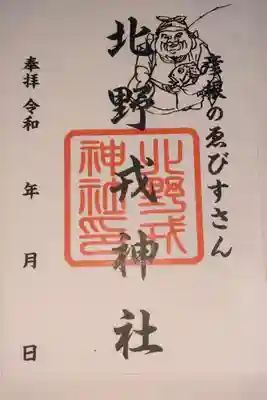 彦根のゑびすさん
北野戎神社
北野戎
神社印
奉拝 令和 年 月 日